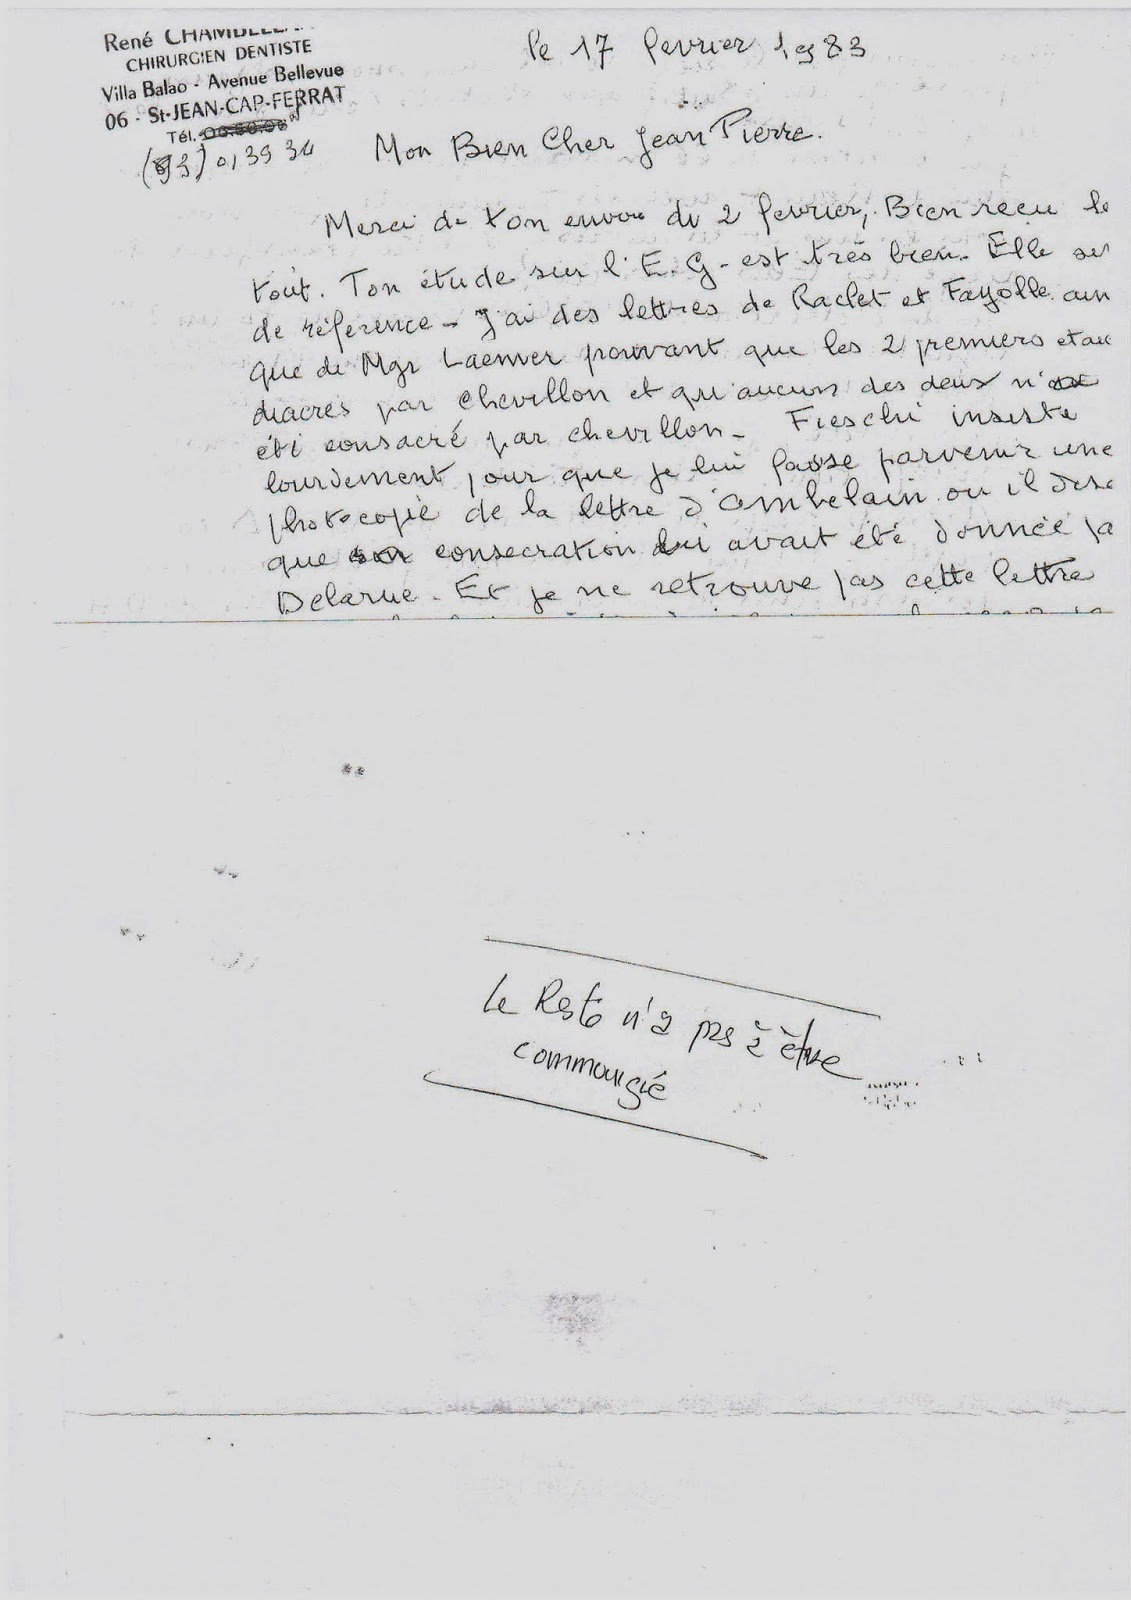 René CHAMBELLA
CHIRURGIEN DENTISTE
Villa Balao - Avenue Bellevue
06 - St-JEAN-CAP-FERRAT
Tél.
(93) 01 39 34
le 17 fevrier 1983
Mon Bien Cher Jean Pierre.
Merci de ton envoi du 2 fevrier, Bien recu le
tout. Ton étude sur l'E. G - est très bien. Elle ser
de référence - J'ai des lettres de Raclet et Fayolle ain
que de Mgr Laemmer prouvant que les 2 premiers étai
diacres par Chevillon et qu'aucun des deux n'
été consacré par chevillon - Fieschi insiste
lourdement pour que je lui fasse parvenir une
photocopie de la lettre d'Ambelain ou il
que consecration lui avait été donnée pa
Delarue. Et je ne retrouve pas cette lettre
Le Reste n'a pas à être